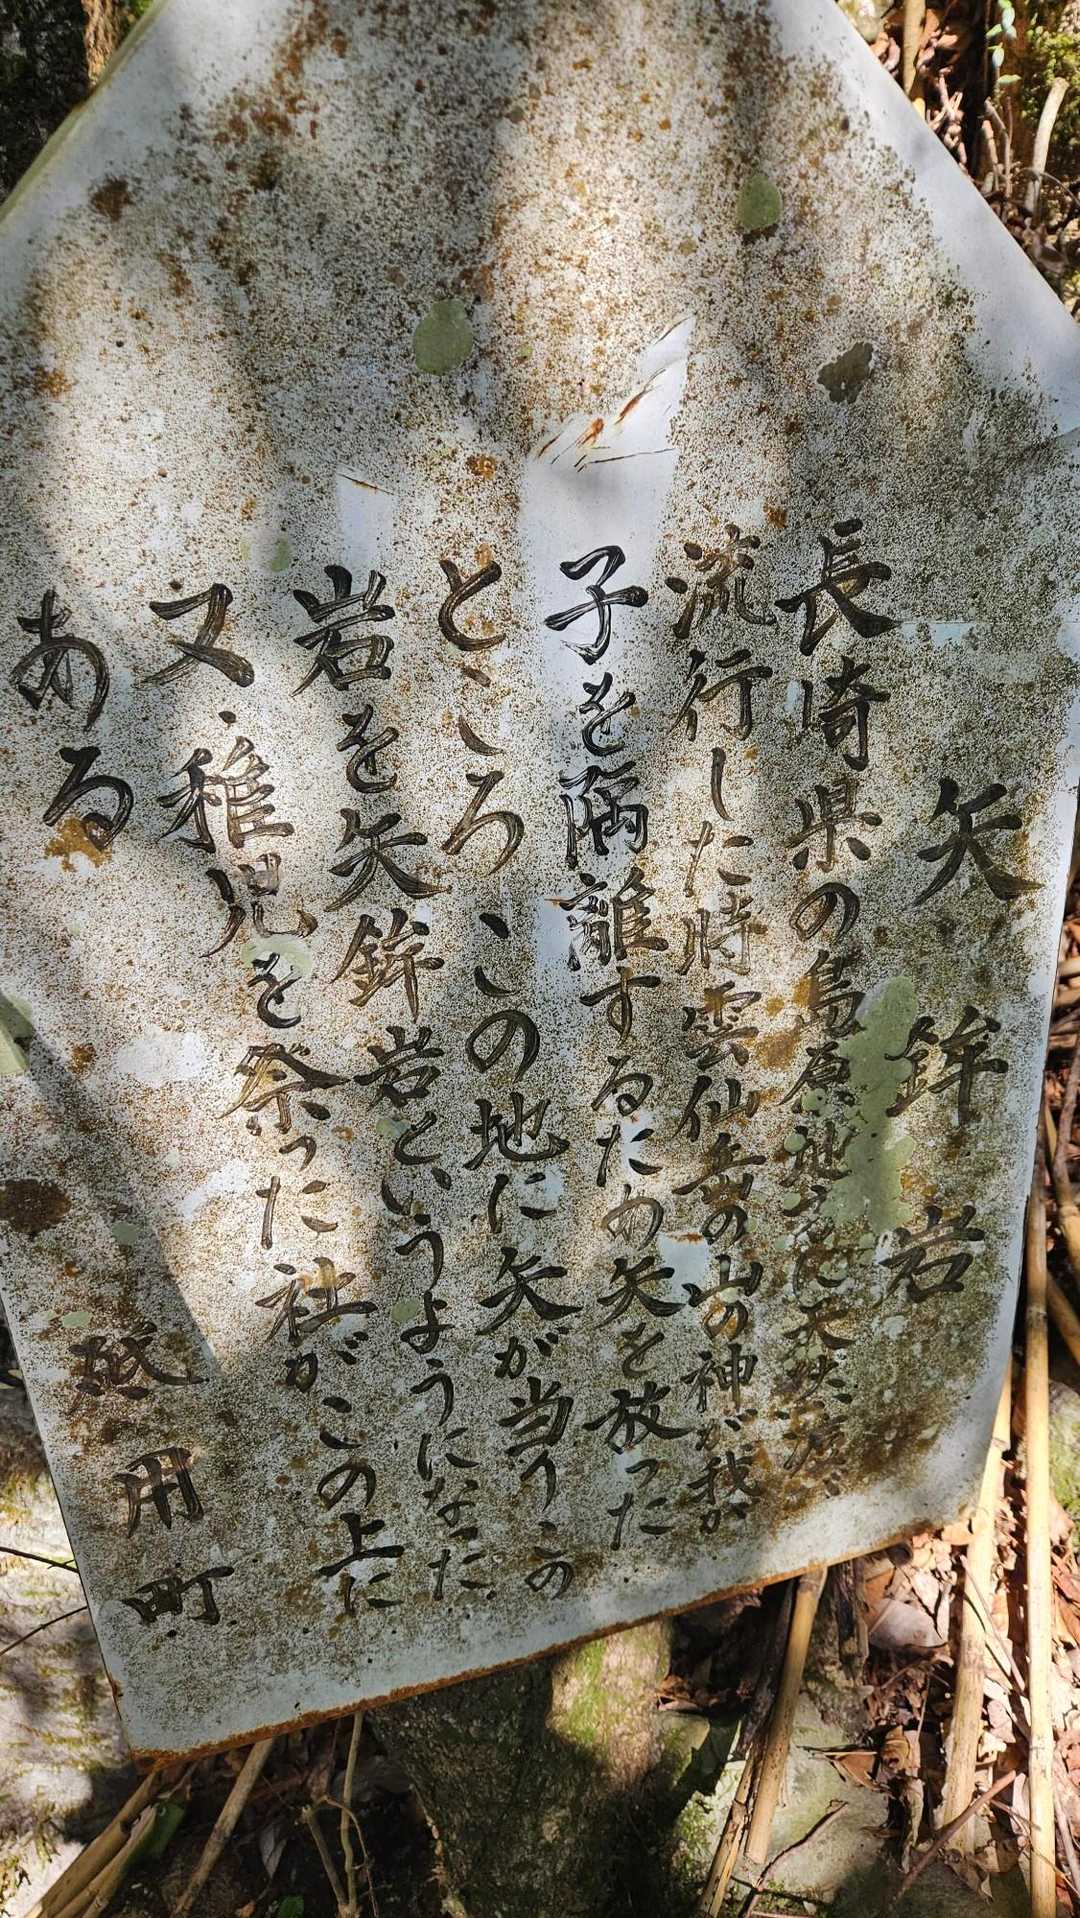 矢鉾岩
長崎県の島原地方に天然痘が
流行した時雲仙岳の山の神が我が
子を隔離するため矢を放った
ところ、この地に矢が当りこの
岩を矢鉾岩というようになった
又、稚児を祭った社がこの上に
ある
砥用町